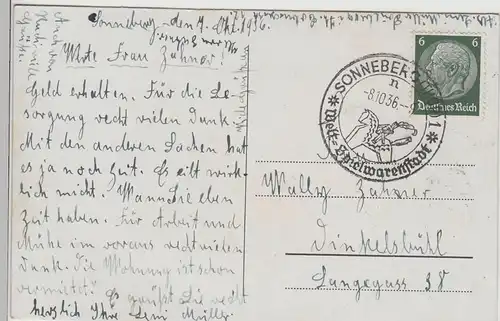 Sonneberg, den 7. Okt. 1936.
Werte Frau Zahner!
Geld erhalten. Für die Be-
sorgung recht vielen Dank.
Mit den anderen Sachen hat
es ja noch Zeit. Es eilt wirk-
lich nicht. Wann Sie eben
Zeit haben. Für Arbeit und
Mühe im voraus recht vielen
Dank. Die Wohnung ist schon
vermietet. Es grüßt Sie recht
herzlich Ihre Leni Müller.
Auch von
viele
Grüße
SONNEBERG
n
-8.10.36.-
Welt-Spielwarenstadt
6 6
Deutsches Reich
Wally Zahner
Dinkelsbühl
Langegass 38